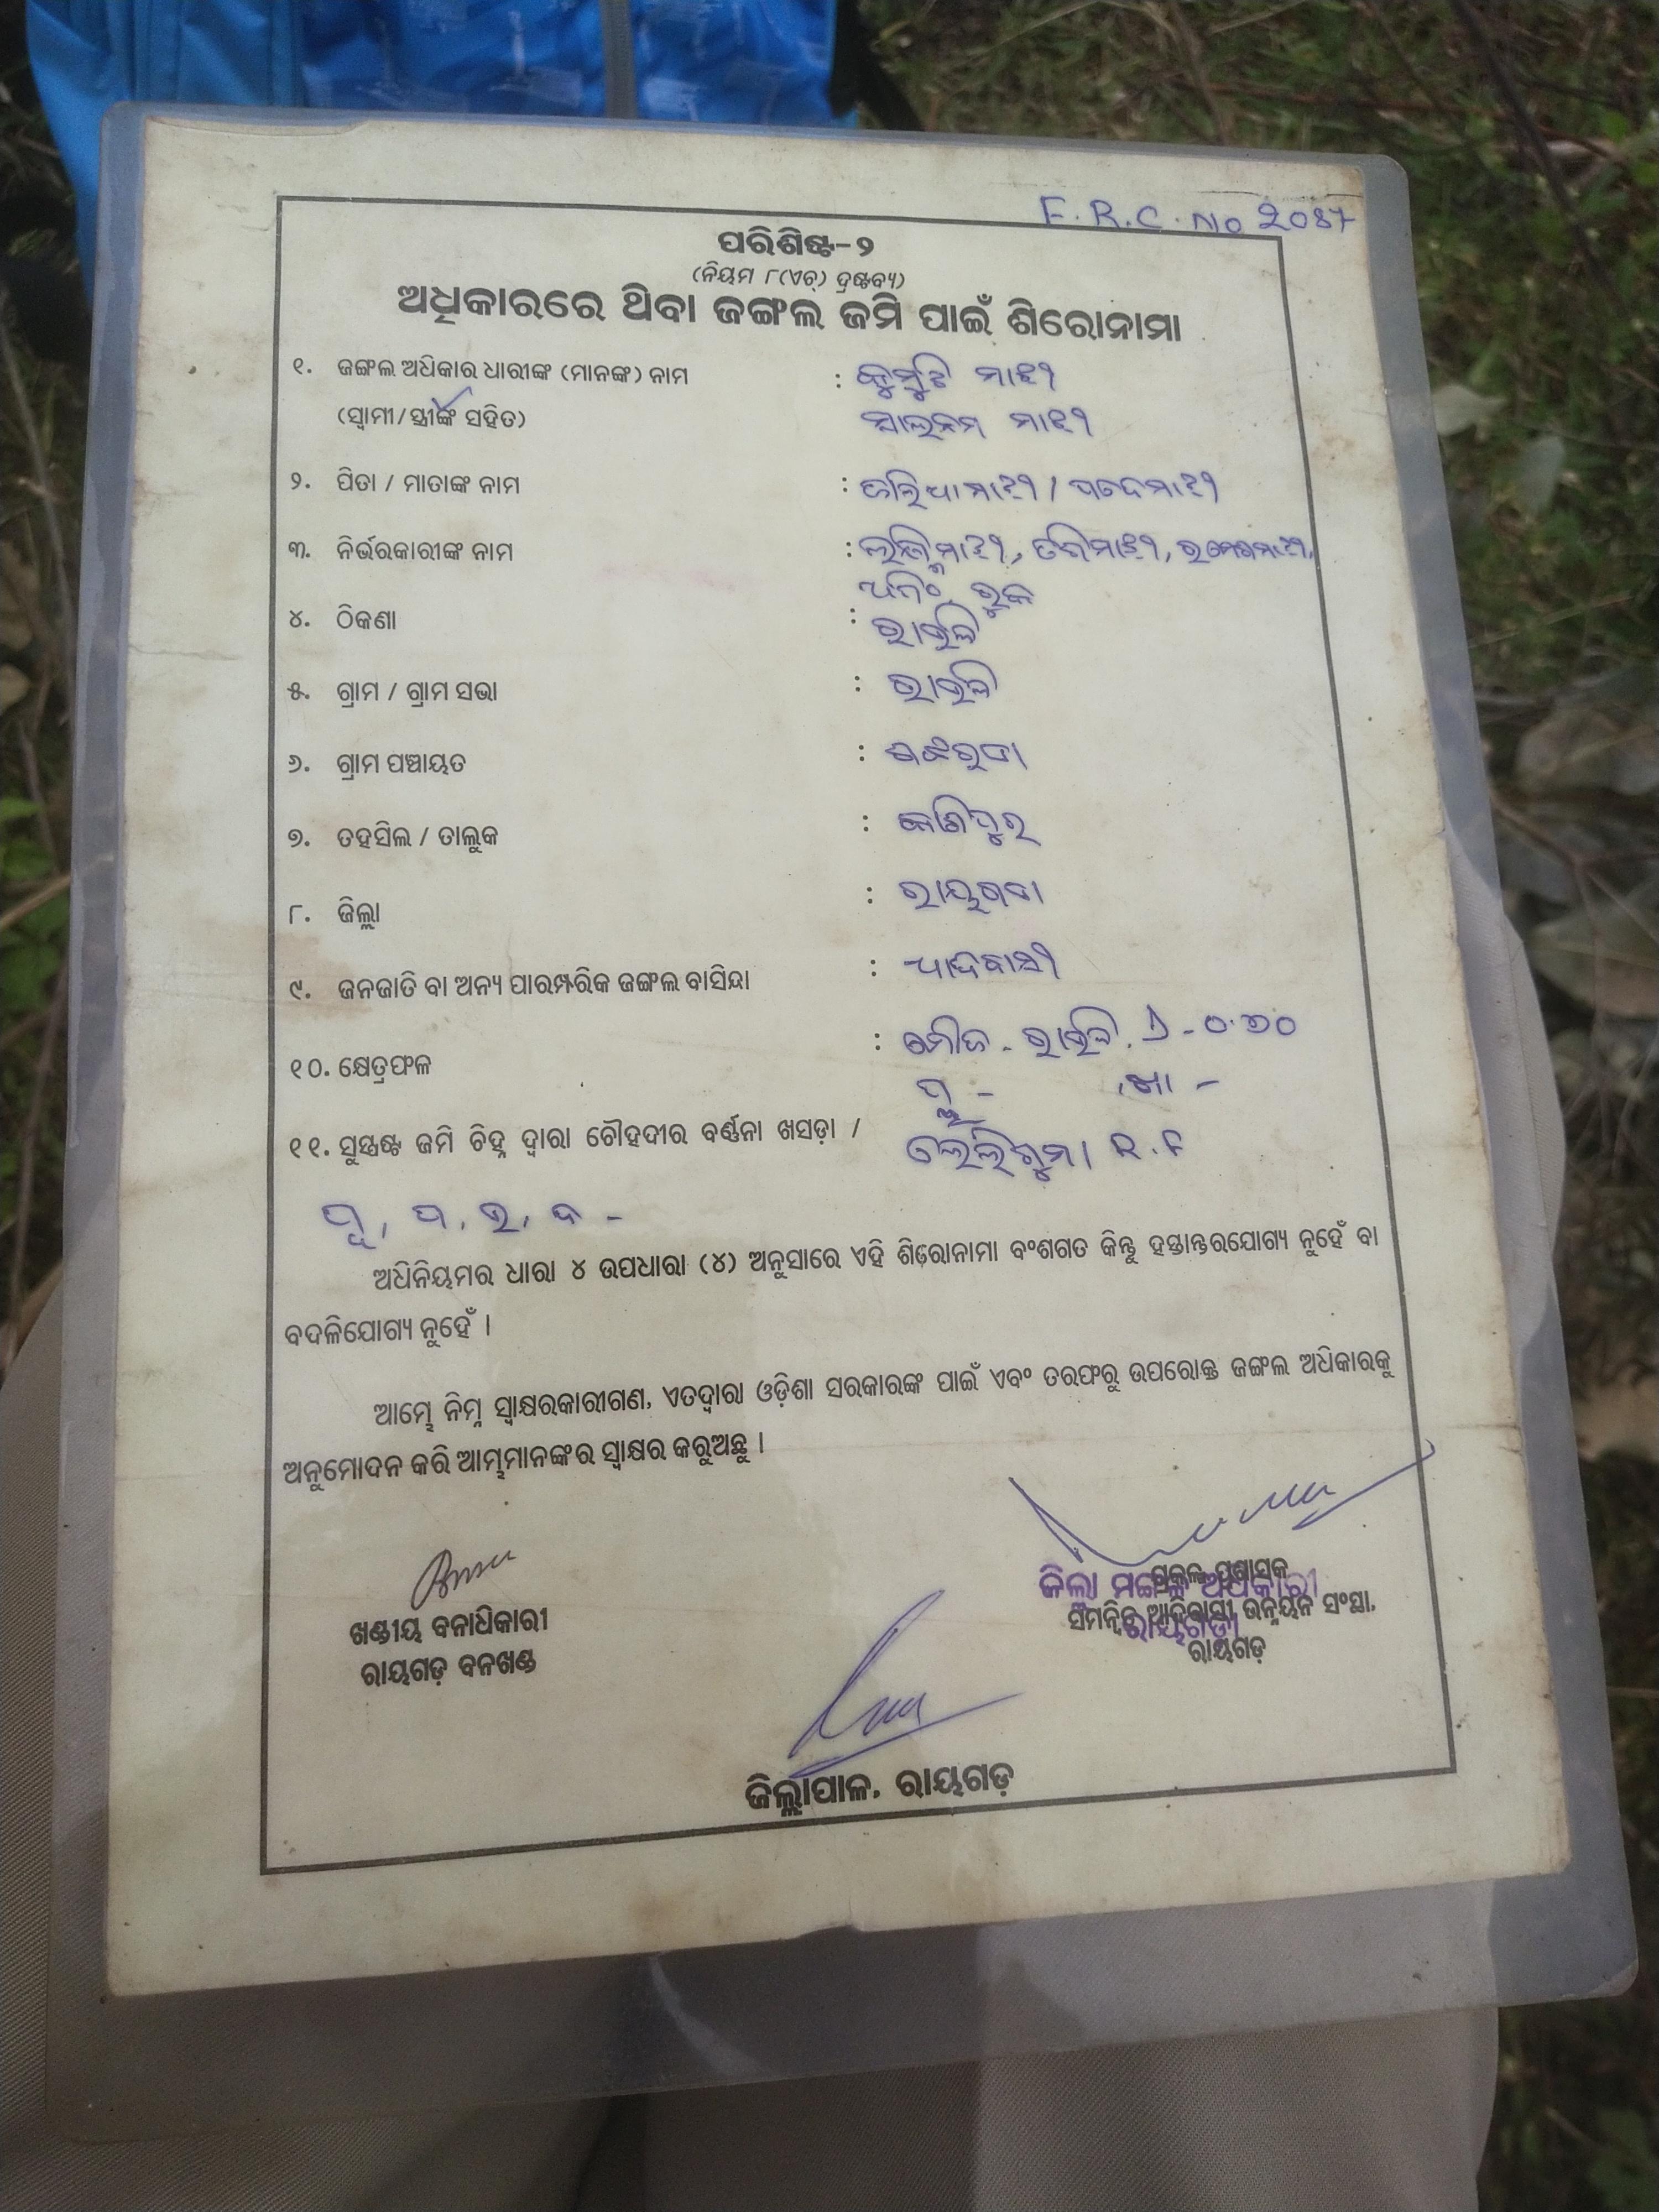 F.R.C. No 2087
ପରିଶିଷ୍ଟ-୨
(ନିୟମ ୮(ଏଚ୍) ଦ୍ରଷ୍ଟବ୍ୟ)
ଅଧିକାରରେ ଥିବା ଜଙ୍ଗଲ ଜମି ପାଇଁ ଶିରୋନାମା
୧. ଜଙ୍ଗଲ ଅଧିକାର ଧାରୀଙ୍କ (ମାନଙ୍କ) ନାମ : ମାଝୀ
(ସ୍ୱାମୀ/ସ୍ତ୍ରୀଙ୍କ ସହିତ) ମାଝୀ
୨. ପିତା / ମାତାଙ୍କ ନାମ :
୩. ନିର୍ଭରକାରୀଙ୍କ ନାମ :
୪. ଠିକଣା : ରାଉଳି
୫. ଗ୍ରାମ / ଗ୍ରାମ ସଭା : ରାଉଳି
୬. ଗ୍ରାମ ପଞ୍ଚାୟତ :
୭. ତହସିଲ / ତାଲୁକ : କାଶିପୁର
୮. ଜିଲ୍ଲା : ରାୟଗଡା
୯. ଜନଜାତି ବା ଅନ୍ୟ ପାରମ୍ପରିକ ଜଙ୍ଗଲ ବାସିନ୍ଦା : ଆଦିବାସୀ
୧୦. କ୍ଷେତ୍ରଫଳ : ମୌଜା - ରାଉଳି
୧୧. ସୁସ୍ପଷ୍ଟ ଜମି ଚିହ୍ନ ଦ୍ୱାରା ଚୌହଦୀର ବର୍ଣ୍ଣନା ଖସଡ଼ା / R.F
ପୂ, ପ, ଉ, ଦ -
ଅଧିନିୟମର ଧାରା ୪ ଉପଧାରା (୪) ଅନୁସାରେ ଏହି ଶିରୋନାମା ବଂଶଗତ କିନ୍ତୁ ହସ୍ତାନ୍ତରଯୋଗ୍ୟ ନୁହେଁ ବା
ବଦଳିଯୋଗ୍ୟ ନୁହେଁ ।
ଆମ୍ଭେ ନିମ୍ନ ସ୍ୱାକ୍ଷରକାରୀଗଣ, ଏତଦ୍ୱାରା ଓଡ଼ିଶା ସରକାରଙ୍କ ପାଇଁ ଏବଂ ତରଫରୁ ଉପରୋକ୍ତ ଜଙ୍ଗଲ ଅଧିକାରକୁ
ଅନୁମୋଦନ କରି ଆମ୍ଭମାନଙ୍କର ସ୍ୱାକ୍ଷର କରୁଅଛୁ ।
ଖଣ୍ଡୀୟ ବନାଧିକାରୀ
ରାୟଗଡ଼ ବନଖଣ୍ଡ
ପ୍ରକଳ୍ପ ପ୍ରଶାସକ
ଜିଲ୍ଲା ମଙ୍ଗଳ ଅଧିକାରୀ
ସମନ୍ୱିତ ଆଦିବାସୀ ଉନ୍ନୟନ ସଂସ୍ଥା,
ରାୟଗଡ଼ା
ରାୟଗଡ଼
ଜିଲ୍ଲାପାଳ, ରାୟଗଡ଼